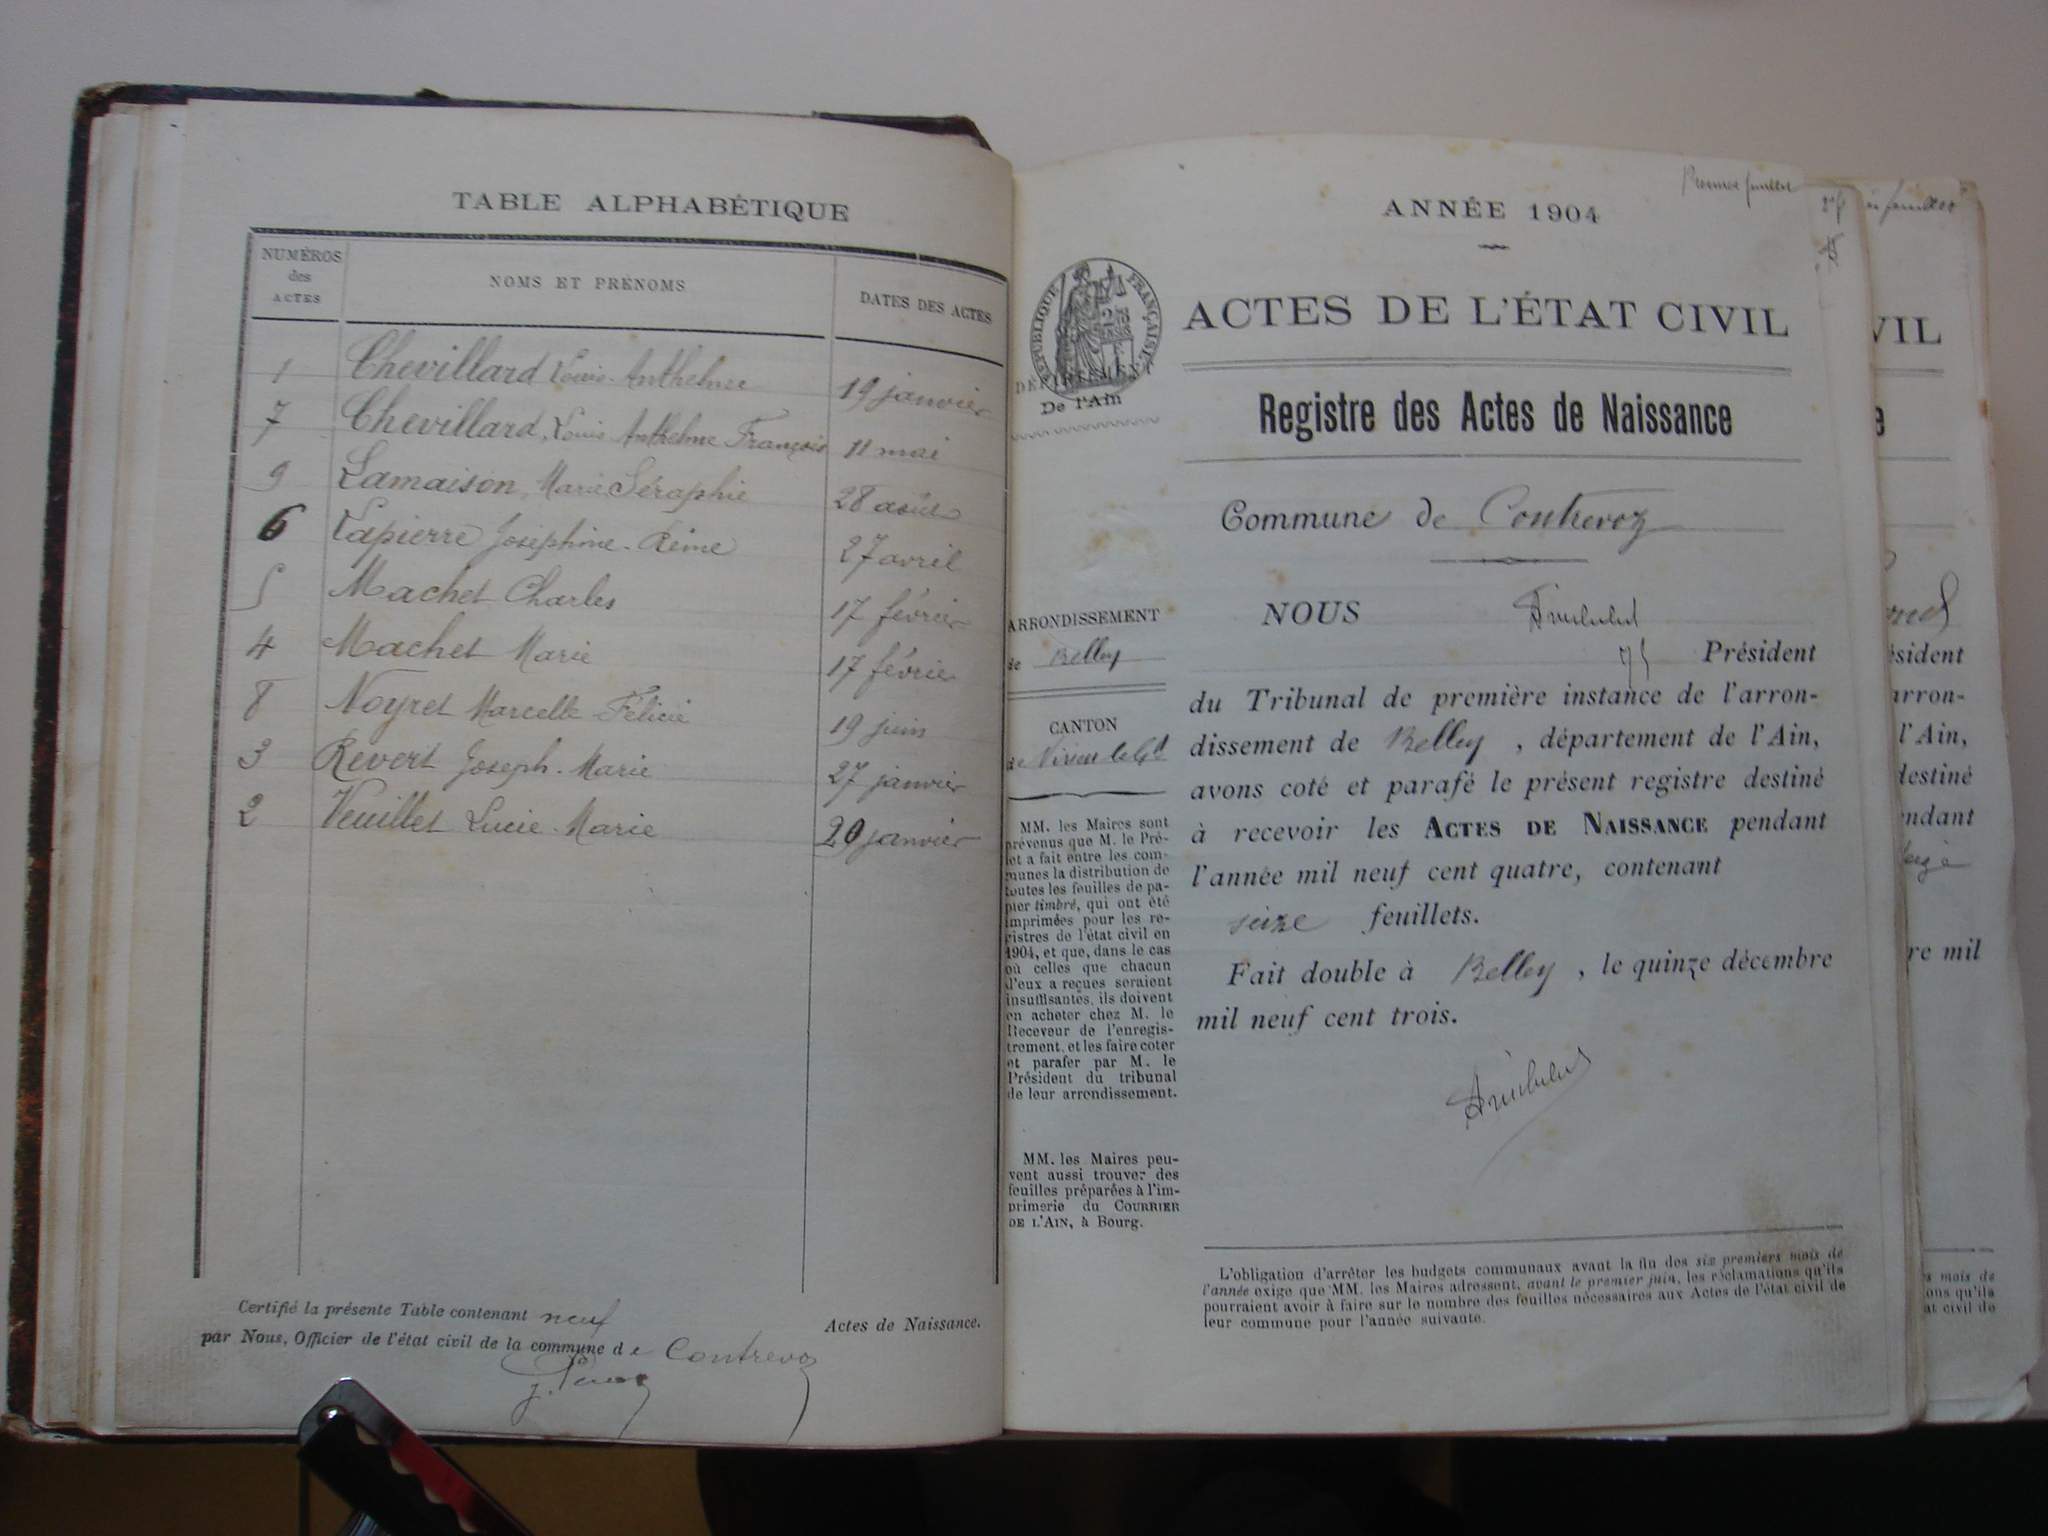 TABLE ALPHABÉTIQUE
NUMÉROS des ACTES
NOMS ET PRÉNOMS
DATES DES ACTES
1 Chevillard Louis-Anthelme 19 janvier
7 Chevillard, Louis Anthelme François 11 mai
9 Lamaison, Marie Séraphie 28 août
6 Lapierre Joséphine-Reine 27 avril
5 Machet Charles 17 février
4 Machet Marie 17 février
8 Noyret Marcelle-Félicie 19 juin
3 Revert Joseph-Marie 27 janvier
2 Veuillet Lucie-Marie 20 janvier
Certifié la présente Table contenant neuf Actes de Naissance.
par Nous, Officier de l'état civil de la commune de Contrevoz
Premier feuillet
ANNÉE 1904
RÉPUBLIQUE FRANÇAISE
DÉPARTEMENT
De l'Ain
ACTES DE L'ÉTAT CIVIL
Registre des Actes de Naissance
Commune de Contrevoz
ARRONDISSEMENT
de Belley
CANTON
de Virieu le Gd
MM. les Maires sont
prévenus que M. le Pré-
fet a fait entre les com-
munes la distribution de
toutes les feuilles de pa-
pier timbré, qui ont été
imprimées pour les re-
gistres de l'état civil en
1904, et que, dans le cas
où celles que chacun
d'eux a reçues seraient
insuffisantes, ils doivent
en acheter chez M. le
Receveur de l'enregis-
trement, et les faire coter
et parafer par M. le
Président du tribunal
de leur arrondissement.
MM. les Maires peu-
vent aussi trouver des
feuilles préparées à l'im-
primerie du COURRIER
DE L'AIN, à Bourg.
NOUS
Président
du Tribunal de première instance de l'arron-
dissement de Belley, département de l'Ain,
avons coté et parafé le présent registre destiné
à recevoir les ACTES DE NAISSANCE pendant
l'année mil neuf cent quatre, contenant
seize feuillets.
Fait double à Belley, le quinze décembre
mil neuf cent trois.
L'obligation d'arrêter les budgets communaux avant la fin des six premiers mois de
l'année exige que MM. les Maires adressent, avant le premier juin, les réclamations qu'ils
pourraient avoir à faire sur le nombre des feuilles nécessaires aux Actes de l'état civil de
leur commune pour l'année suivante.
VIL
e
sident
arron-
l'Ain,
destiné
ndant
re mil
s mois de
ons qu'ils
at civil de